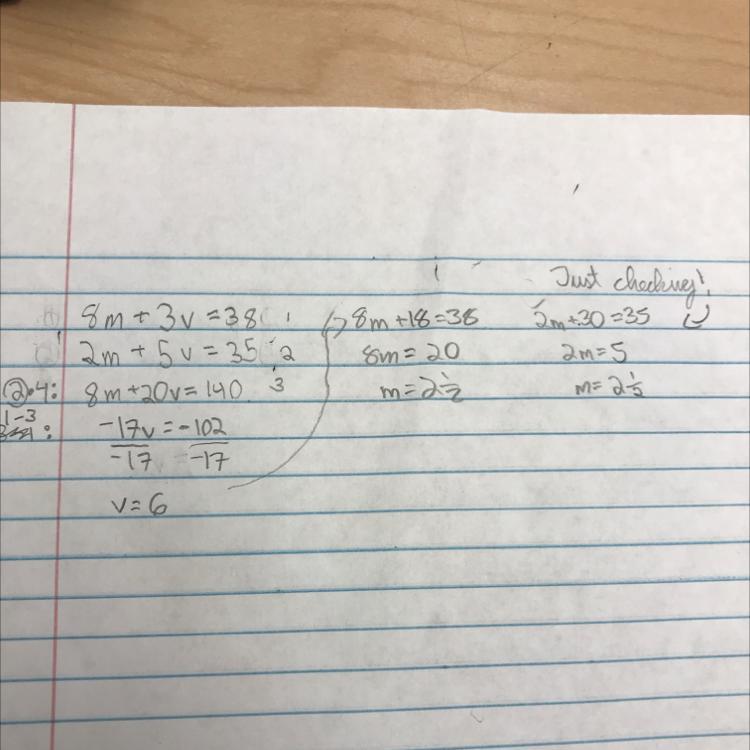 8m + 3v = 38 1
2m + 5v = 35 2
②·4: 8m+20v = 140 3
1-3 :
-17v = -102
-17 -17
v = 6
8m +18 = 38
8m = 20
m = 2 1/2
Just checking!
2m+30 = 35
2m = 5
m = 2 1/2